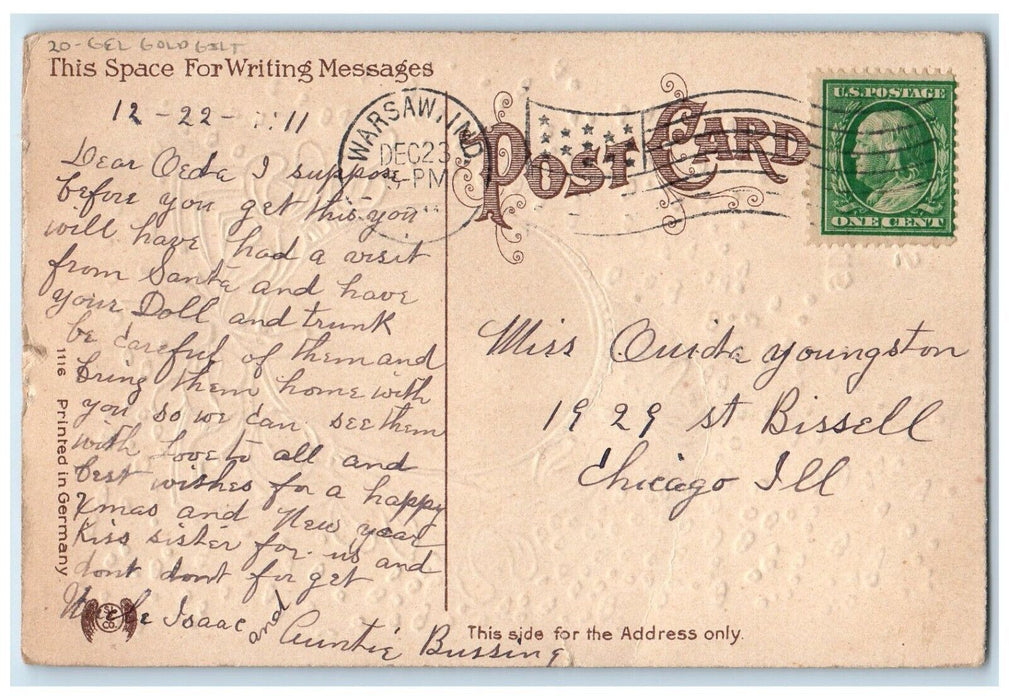 20-GEL GOLD GILT
This Space For Writing Messages
12-22-11
Dear Oeda I suppose
before you get this you
will have had a visit
from Santa and have
your Doll and trunk
be careful of them and
bring them home with
you so we can see them
with Love to all and
best wishes for a happy
Xmas and New year
Kiss sister for us and
dont dont forget
Isaac and Auntie Bussing
1116 Printed in Germany
WARSAW, IND.
DEC 23
PM
POST CARD
U.S. POSTAGE
ONE CENT
Miss Ouida Youngston
1929 st Bissell
Chicago Ill
This side for the Address only.